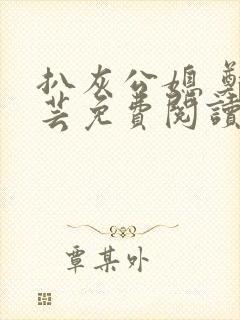 扒灰公媳 鄭
芸免費閱讀
覃某外